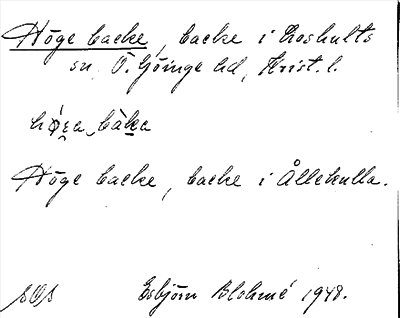 Höge backe, backe i Loshults
sn, Ö. Göinge hd, Krist. l.
Höge backe, backe i Ållekulla.
SOS Esbjörn Blohmé 1948.